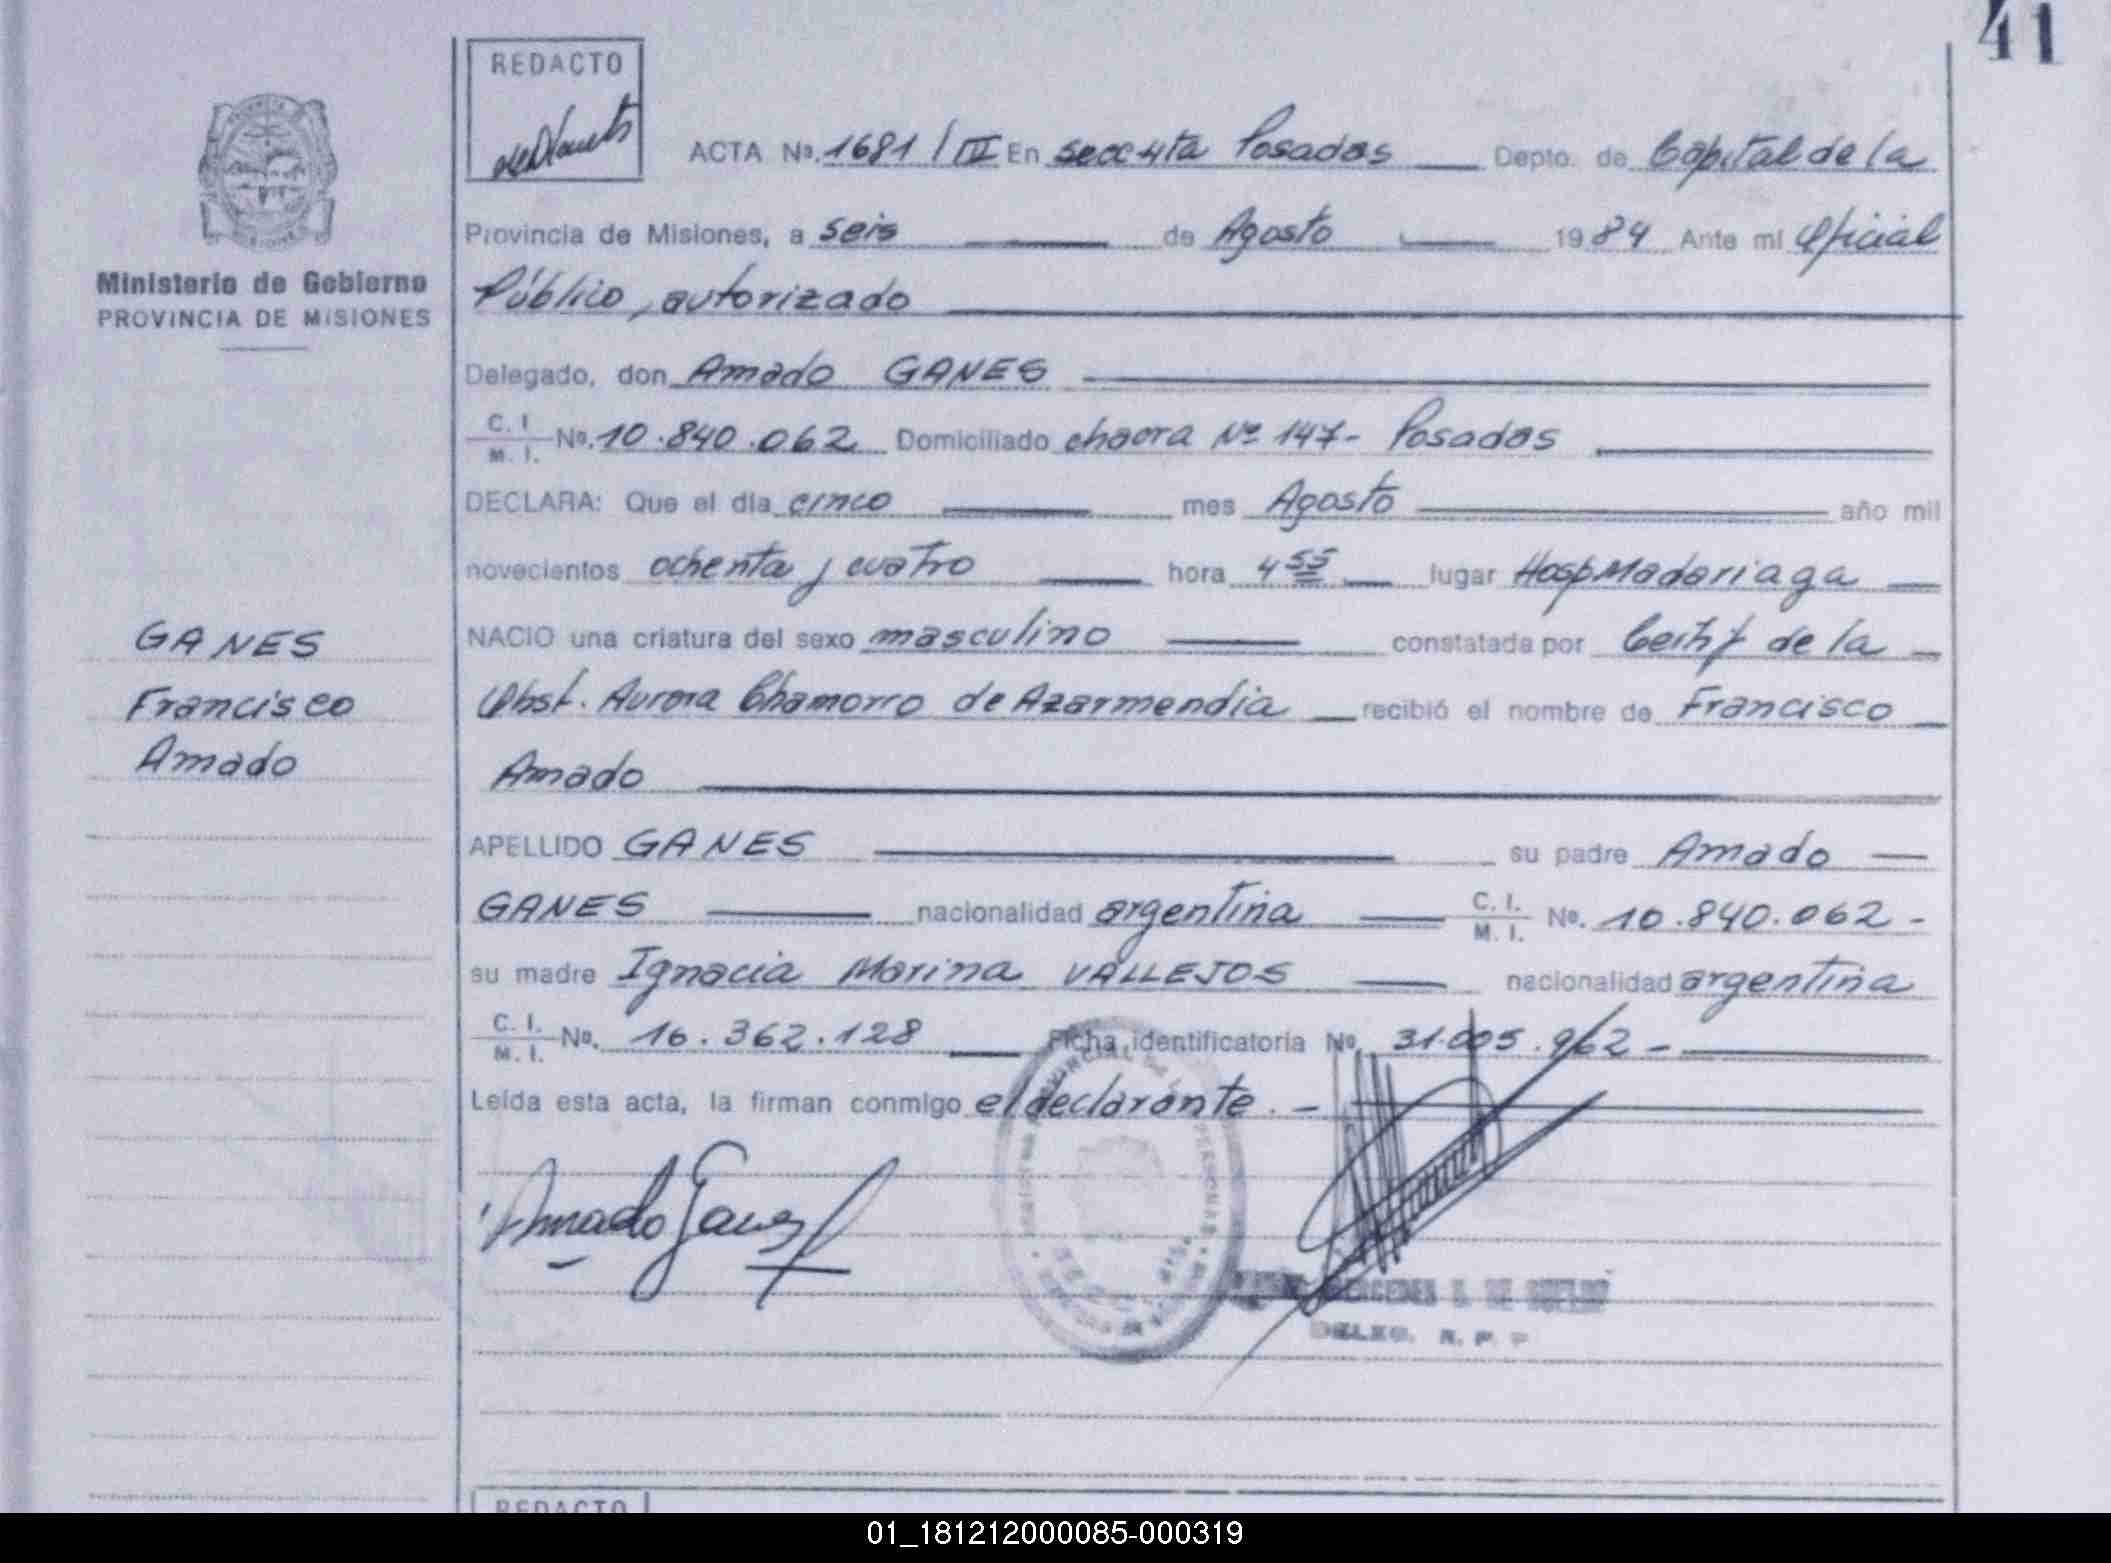 41
REDACTO
ACTA Nº. 1681 / III En secc 4ta Posadas Depto. de Capital de la
Provincia de Misiones, a seis de Agosto 1984 Ante mi Oficial
Público, autorizado
Ministerio de Gobierno
PROVINCIA DE MISIONES
Delegado, don Amado GANES
C. I. M. I. Nº. 10.840.062 Domiciliado chacra Nº 147- Posadas
DECLARA: Que el día cinco mes Agosto año mil
novecientos ochenta y cuatro hora 4 55 lugar Hosp Madariaga
NACIO una criatura del sexo masculino constatada por Certif de la
Obst. Aurora Chamorro de Azarmendia recibió el nombre de Francisco
Amado
GANES
Francisco
Amado
APELLIDO GANES su padre Amado
GANES nacionalidad argentina C. I. M. I. Nº. 10.840.062 -
su madre Ignacia Marina VALLEJOS nacionalidad argentina
C. I. M. I. Nº. 16.362.128 Ficha identificatoria Nº 31.005.962 -
Leída esta acta, la firman conmigo el declarante. -
Amado Ganes
MERCEDES
DELEG. R. P. P
REDACTO
01_181212000085-000319